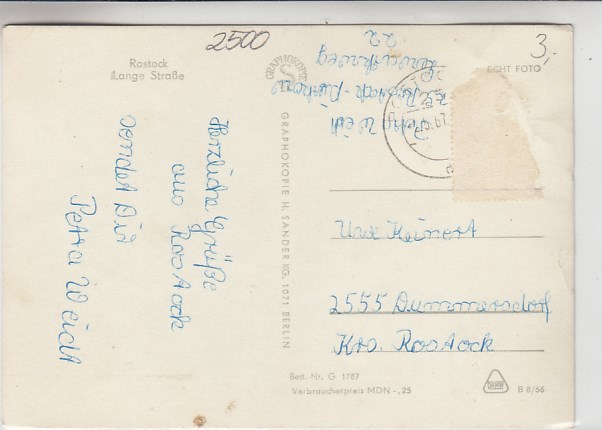 2500
3,-
Rostock
Lange Straße
GRAPHOKOPIE
ECHT FOTO
Petra Weidt
25 Rostock-
22
Herzliche Grüße
aus Rostock
sendet Dir
Petra Weidt
GRAPHOKOPIE H. SANDER KG, 1071 BERLIN
Uwe Keinert
2555 Dummersdorf
Krs. Rostock
Best.-Nr. G 1787
Verbraucherpreis MDN -,25
B 8/66